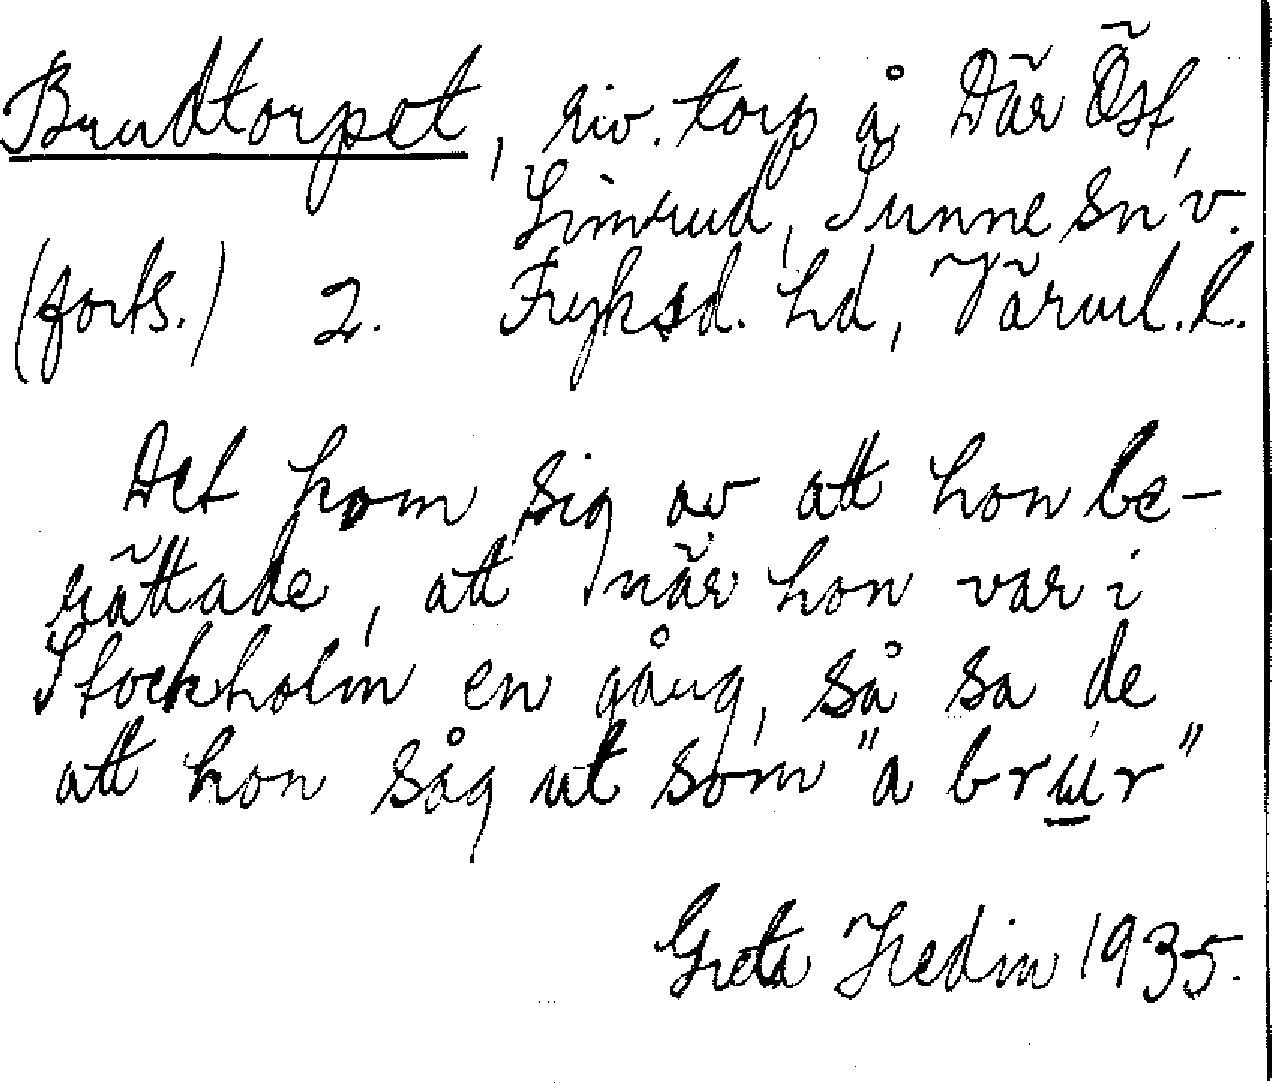 Brudtorpet, riv. torp å Där Öst
Simrud, Sunne sn v.
(forts.) 2. Fryksd. hd, Värml. l.
Det kom sig av att hon be-
rättade, att när hon var i
Stockholm en gång, så sa de
att hon såg ut som "a brur"
Greta Hedin 1935.